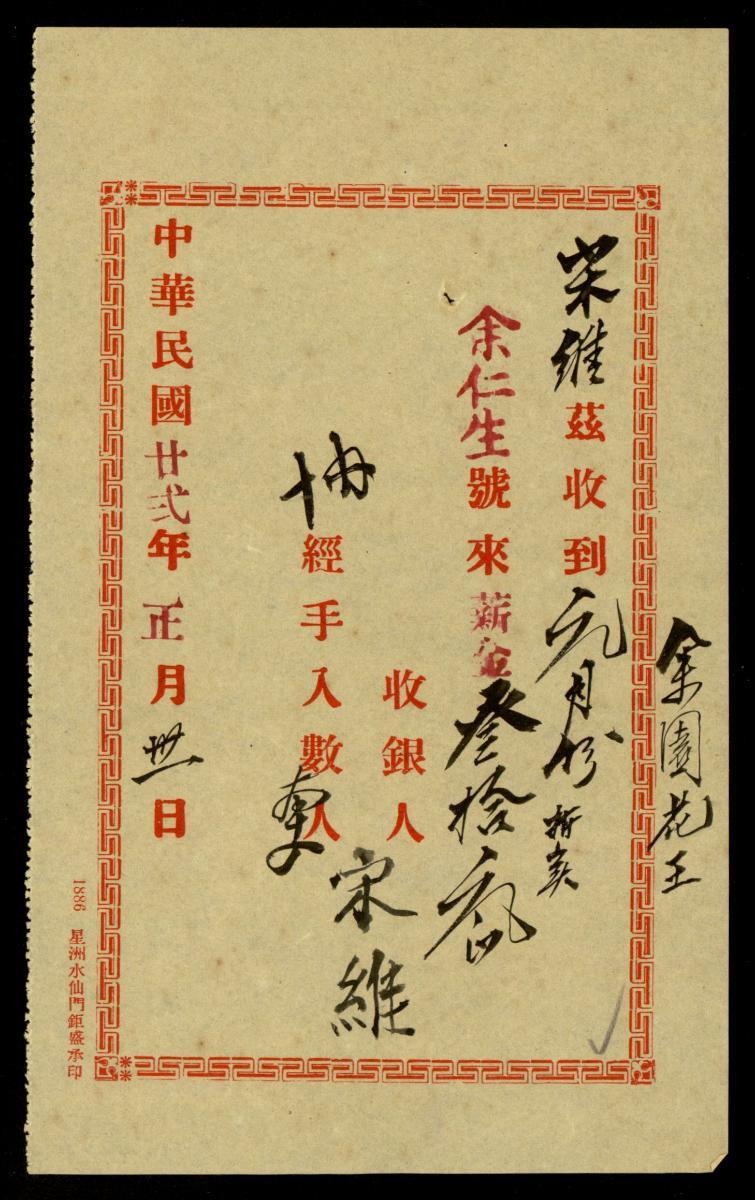 余園花王
宋維茲收到元月份薪
余仁生號來薪金叁拾元
收銀人宋維
經手入數人
中華民國廿弍年正月卅一日
1886 星洲水仙門鉅盛承印